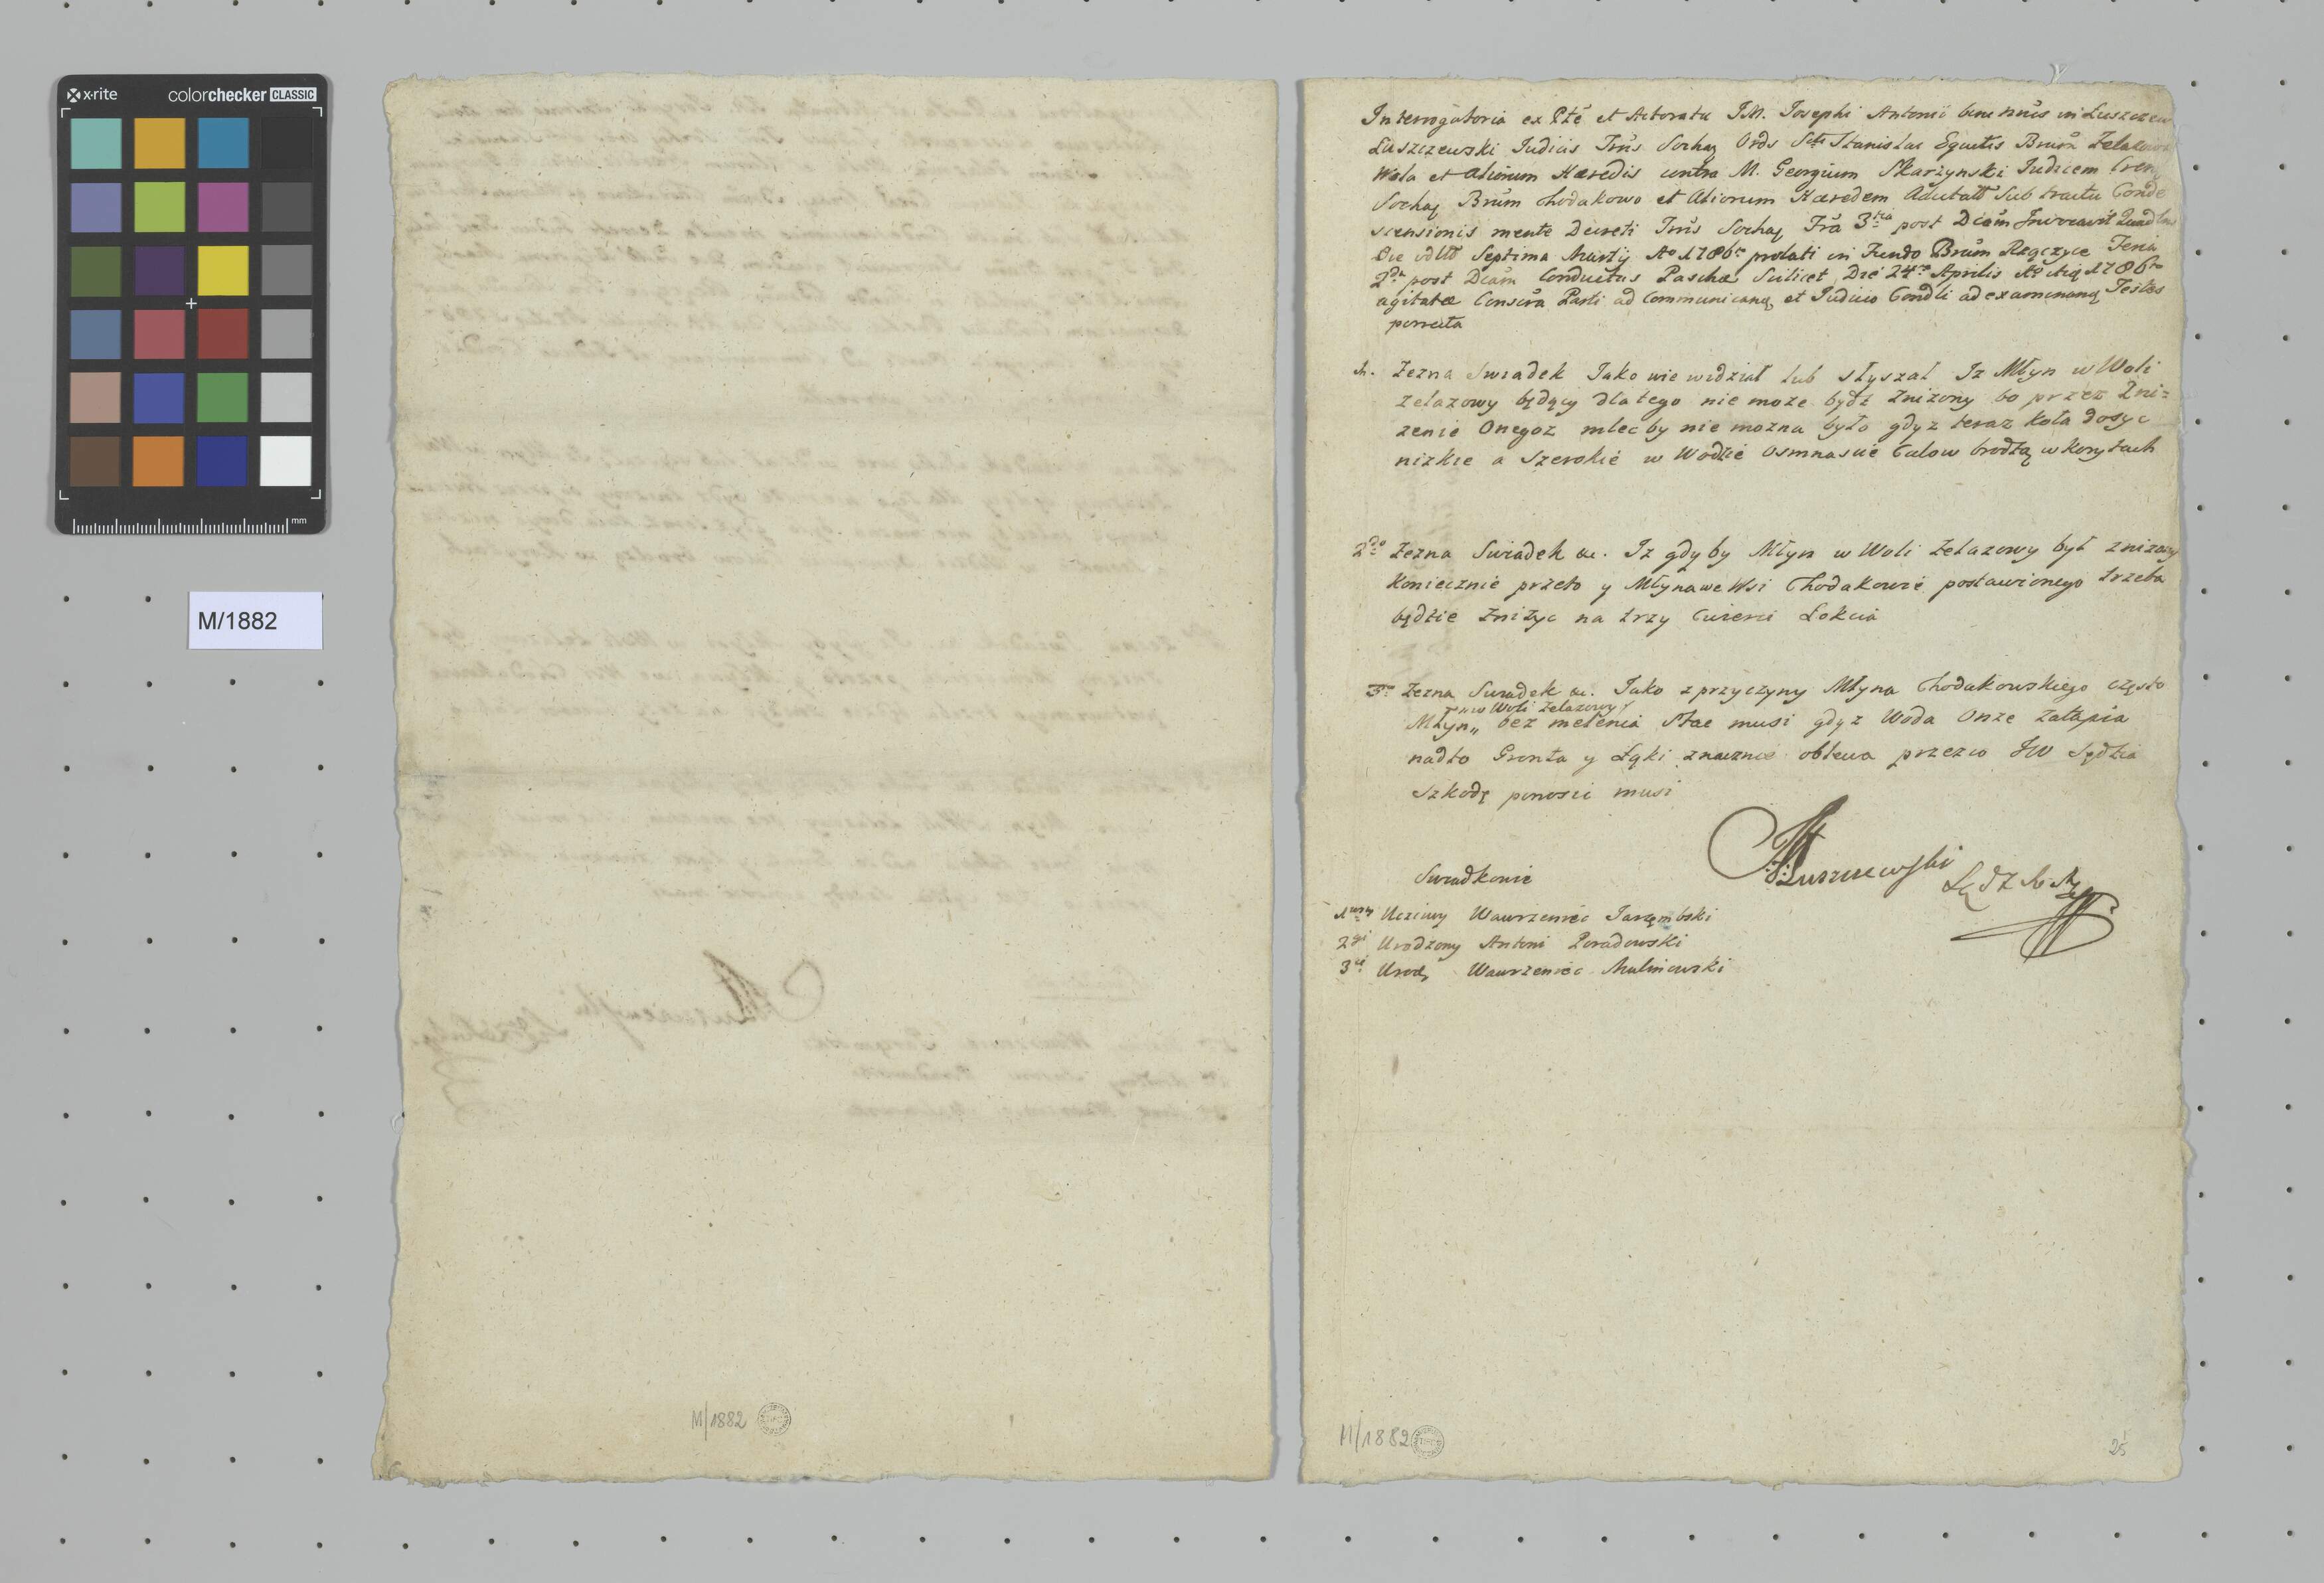 x-rite colorchecker CLASSIC
mm
M/1882
M/1882
Interrogatoria ex Pte et Actoratu JM. Josephi Antonii bene in Łuszczew
Łuszczewski Judicis Trris Sochaq Ords Scti Stanislai Equitis Brum Zelazowa
Wola et Aliorum Hæredis contra M. Georgium Skarzynski Judicem
Sochaq Brum Chodakowo et Aliorum Hæredem sub tractu Conde
scensionis mente Decreti Trris Sochaq Fra 3tia post Dcam Invocavit
Die Septima Martij Ao 1786to prolati in Fundo Brum Regczyce Feria
2da post Dcam Conductus Paschæ Scilicet Die 24ta Aprilis Ao 1786to
agitatæ Parti ad Communicanq et Judicio Condli ad examinanq Testes
porrecta
1. Zezna Swiadek Jako wie widział lub słyszał Iz Młyn w Woli
Zelazowy będący dlatego nie moze bydz Znizony bo przez Zni=
zenie Onegoz mlec by nie mozna było gdyz teraz koła dosyc
nizkie a Szerokie w Wodzie osmnascie Calow brodzą w korytach
2do Zezna Swiadek &c. Iz gdyby Młyn w Woli Zelazowy był znizony
koniecznie przeto y Młyna we Wsi Chodakowie postawionego trzeba
będzie Znizyc na trzy Cwierci Łokcia
3. Zezna Swiadek &c. Jako z przyczyny Młyna Chodakowskiego często
w Woli Zelazowy
Młyn„ bez melenia Stac musi gdyz Woda Onze Zatapia
nadto Gronta y Łąki znacznie oblewa przez co JW Sędzia
Szkodę ponosic musi
JŁuszczewski
Swiadkowie
1wszy Uczciwy Wawrzeniec Jarzembski
2gi Urodzony Antoni Poradowski
3ci Urodz Wawrzeniec Malinowski
M/1882
25